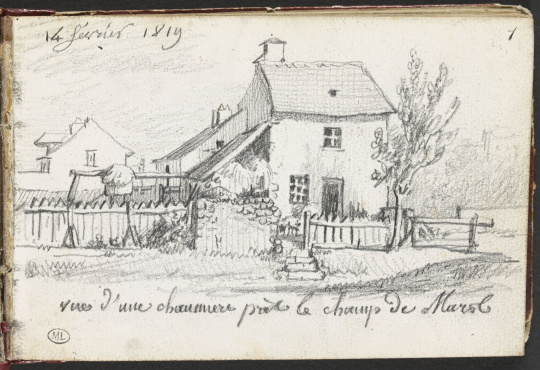 14 février 1819
1
vue d'une chaumiere près le champ de Mars
ML